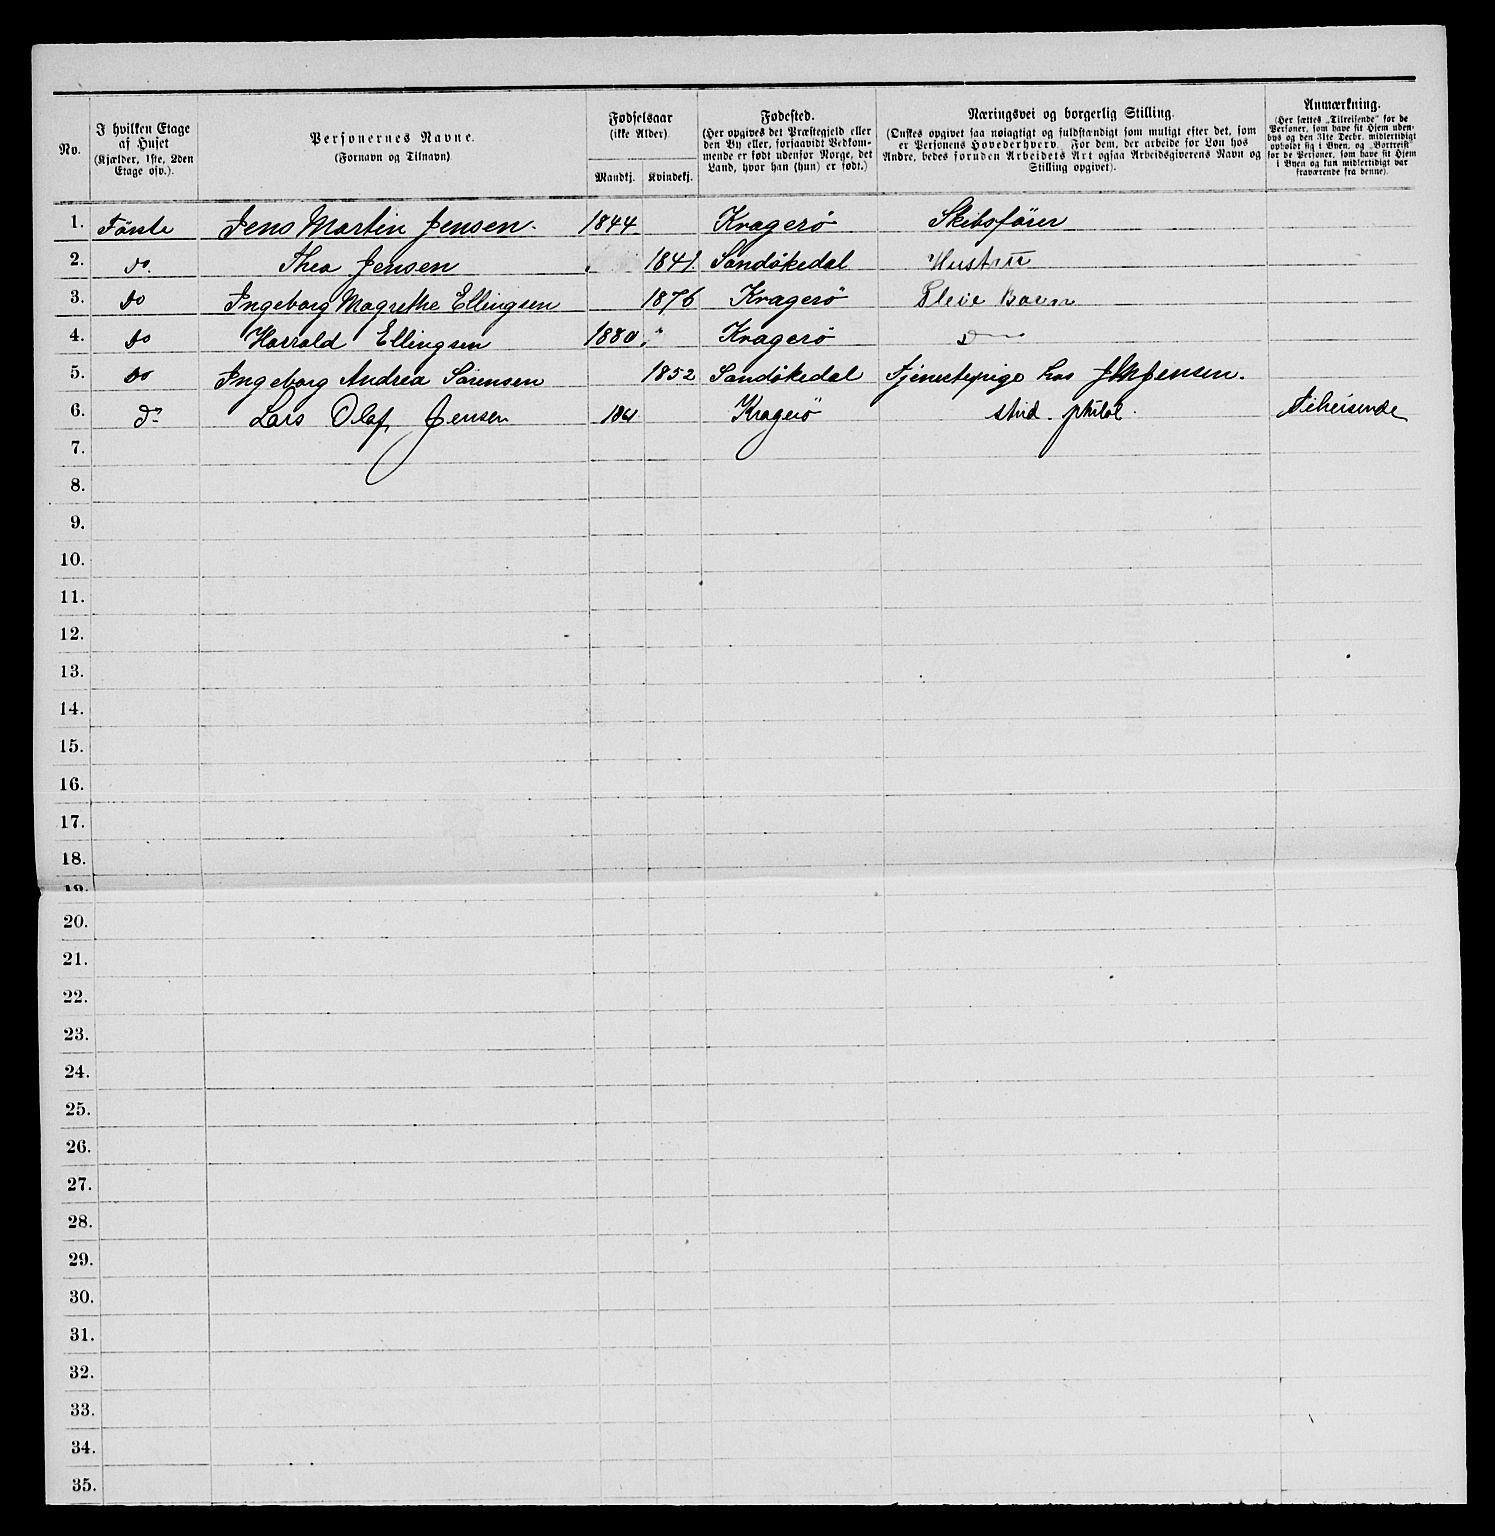 No.
I hvilken Etage af Huset (Kjælder, 1ste, 2den Etage osv.).
Personernes Navne. (Fornavn og Tilnavn)
Fødselsaar (ikke Alder).
Mandkj. Kvindekj.
Fødested. (Her opgives det Præstegjeld eller den By eller, forsaavidt Vedkommende er født udenfor Norge, det Land, hvor han (hun) er født.)
Næringsvei og borgerlig Stilling. (Ønskes opgivet saa nøiagtigt og fuldstændigt som muligt efter det, som er Personens Hovederhverv. For dem, der arbeide for Løn hos Andre, bedes foruden Arbeidets Art ogsaa Arbeidsgiverens Navn og Stilling opgivet).
Anmærkning. (Her sættes „Tilreisende" for de Personer, som have sit Hjem udenbys og den 31te Decbr. midlertidigt opholdt sig i Byen, og „Bortreist" for de Personer, som have sit Hjem i Byen og kun midlertidigt var fraværende fra denne).
1. Förste Jens Martin Jensen. 1844 Kragerö Skibsförer
2. do. Thea Jensen „ 1841. Sandökedal Hustru
3. do Ingeborg Magrethe Ellingsen 1876 Kragerö Pleie Baern
4. do Harrald Ellingsen 1880 „ " Kragerö do
5. do Ingeborg Andrea Sörensen 1852 Sandökedal Tjenestepige hos JMJensen.
6. do Lars Olaf Jensen 1861 Kragerö stud. philol. Tilreisende
7.
8.
9.
10.
11.
12.
13.
14.
15.
16.
17.
18.
19.
20.
21.
22.
23.
24.
25.
26.
27.
28.
29.
30.
31.
32.
33.
34.
35.